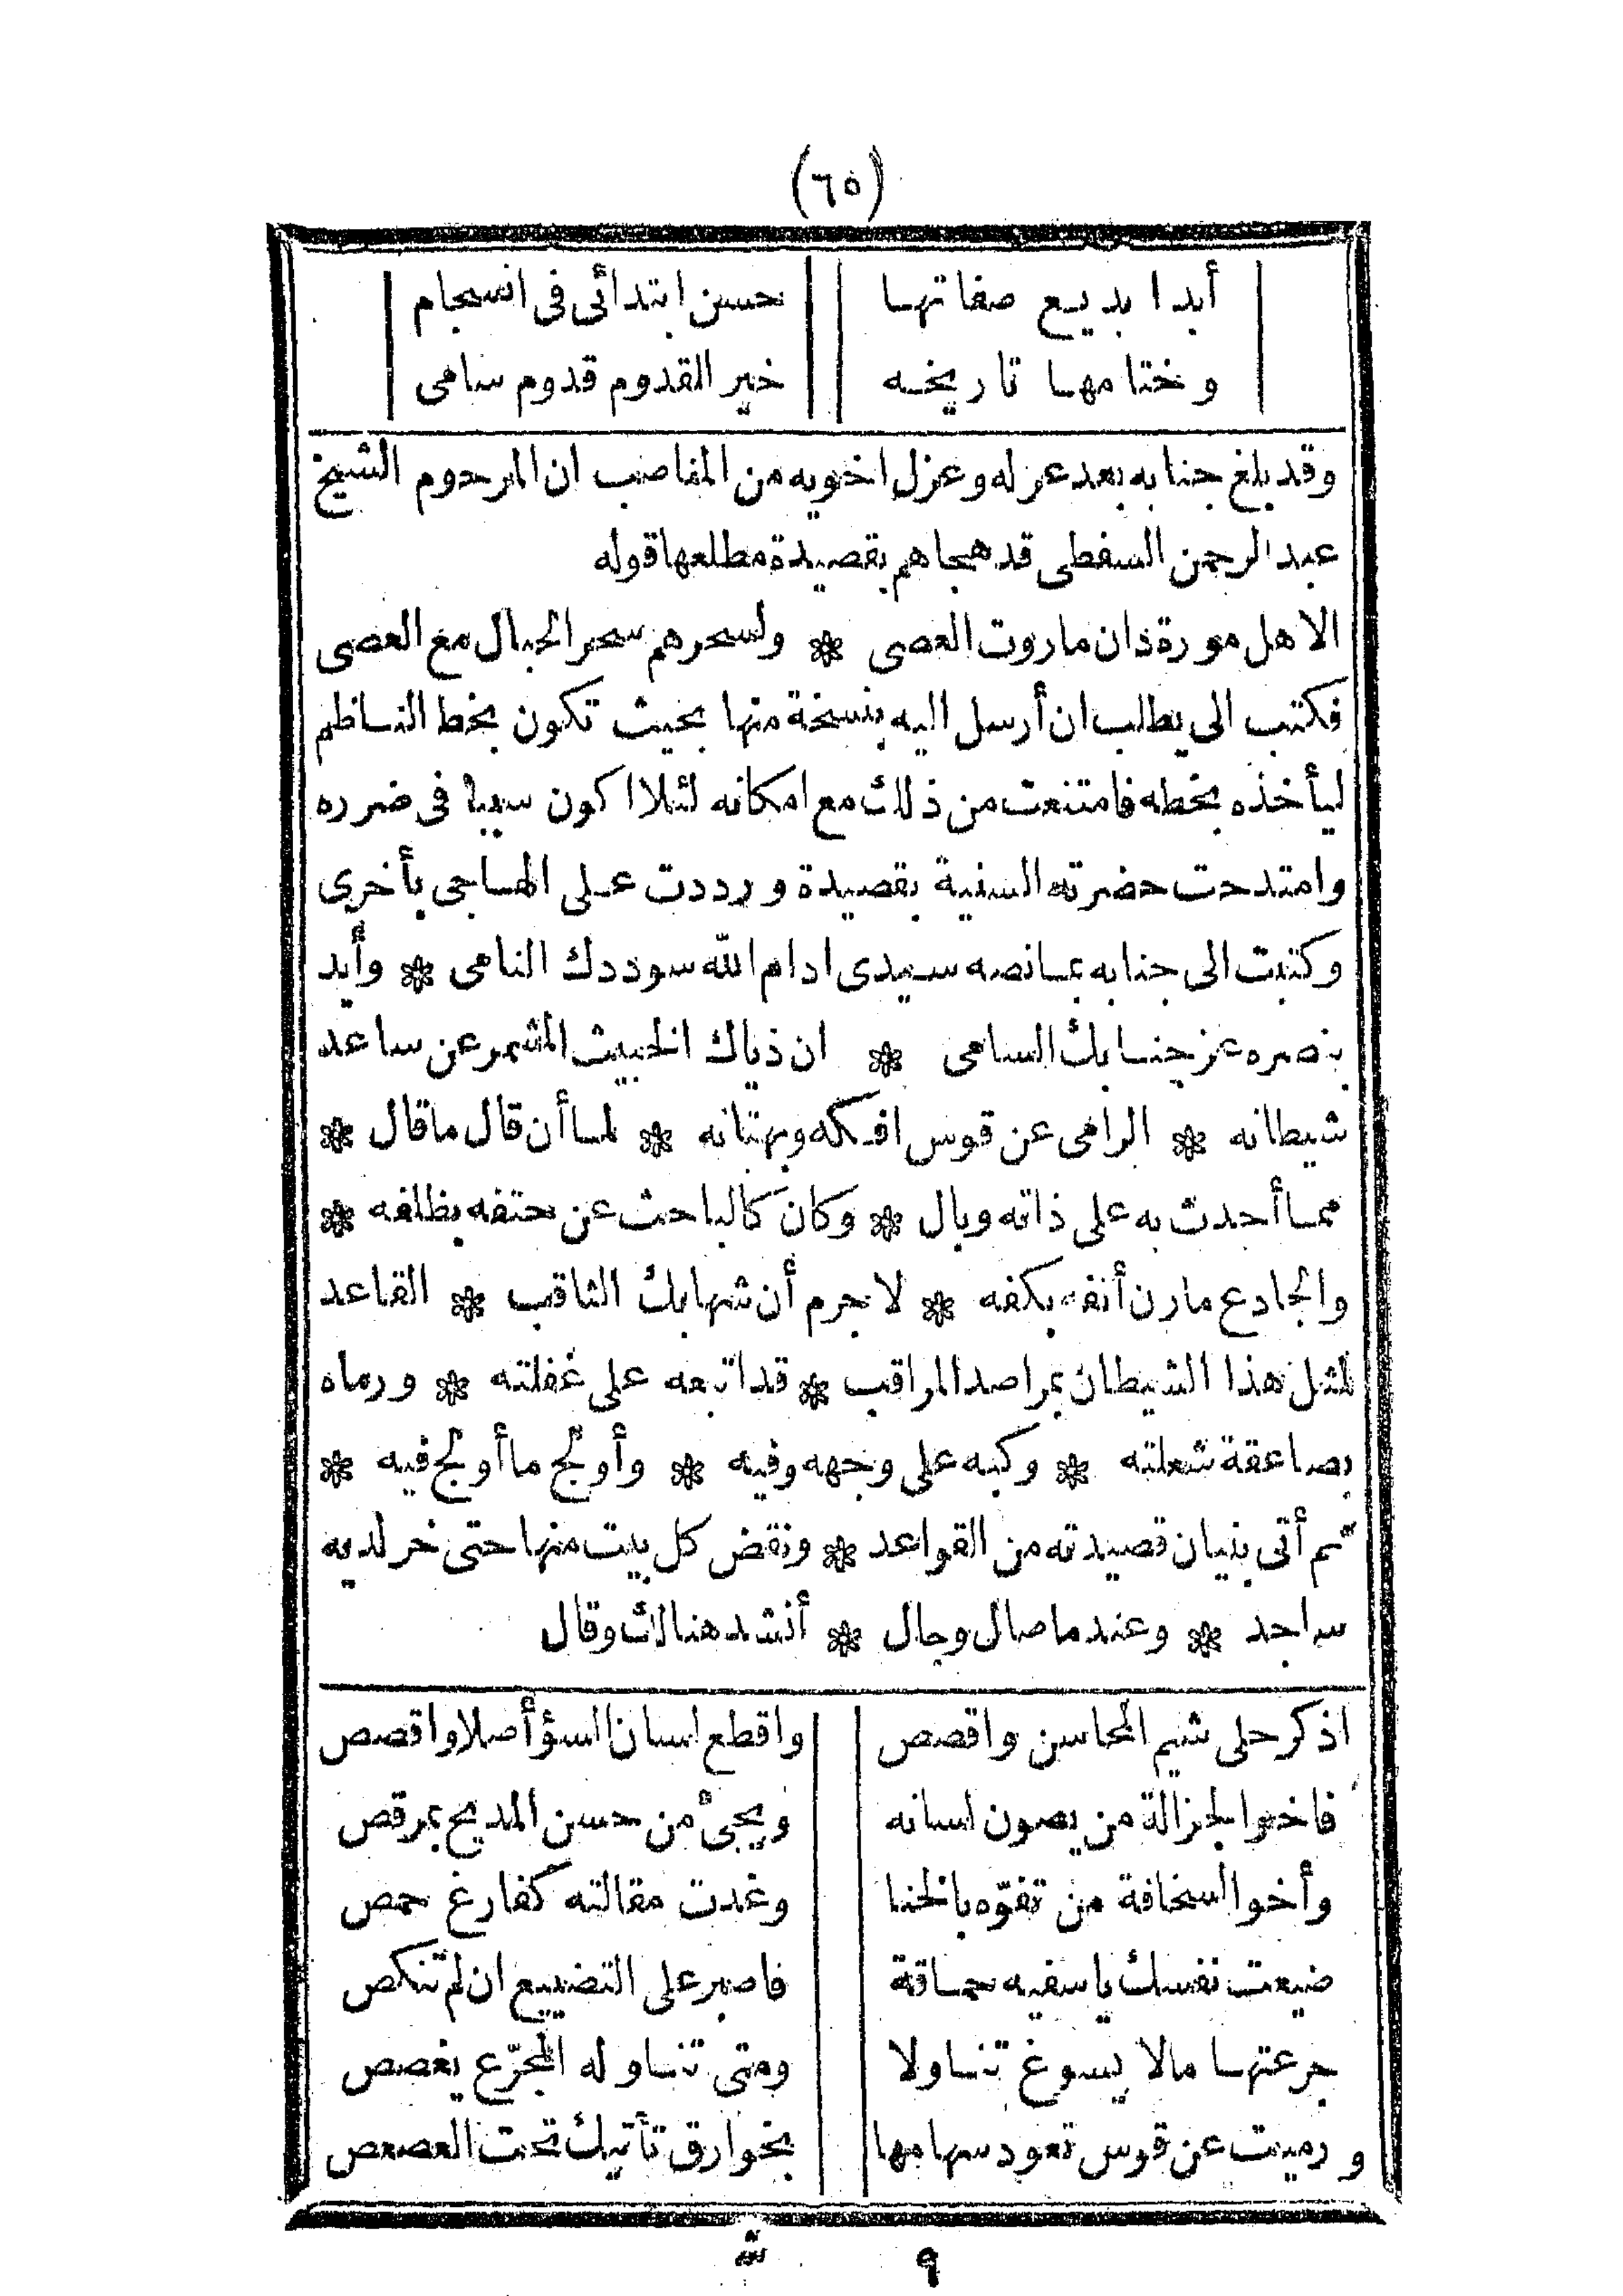 (٦٥)
أبدا بديع صفاتها حسن ابتدائى فى انسجام
وختامها تاريخه خير القدوم قدوم سامى
وقد بلغ جنابه بعد عزله وعزل اخويه من المناصب ان المرحوم الشيخ
عبد الرحمن السفطى قد هجاهم بقصيدة مطلعها قوله
الا هل مورة ذان ماروت العصى * ولسحرهم سحر الحبال مع العصى
فكتب الى يطلب ان أرسل اليه بنسخة منها بحيث تكون بخط الناظم
ليأخذه بخطه فامتنعت من ذلك مع امكانه لئلا اكون سببا فى ضرره
وامتدحت حضرته السنية بقصيدة ورددت على الهاجى بأخرى
وكتبت الى جنابه بمانصه سيدى ادام الله سوددك النامى * وأيد
بنصره عز جنابك السامى * ان ذياك الخبيث المشمر عن ساعد
شيطانه * الرامى عن قوس افكه وبهتانه * لما أن قال ماقال *
مما أحدث به على ذاته وبال * وكان كالباحث عن حتفه بظلفه *
والجادع مارن أنفه بكفه * لا جرم أن شهابك الثاقب * القاعد
لمثل هذا الشيطان بمراصد المراقب * قد اتبعه على غفلته * ورماه
بصاعقة شعلته * وكبه على وجهه وفيه * وأولج ما أولج فيه *
ثم أتى بنيان قصيدته من القواعد * ونقض كل بيت منها حتى خر لديه
ساجد * وعند ما صال وجال * أنشد هنالك وقال
اذكر حلى شيم المحاسن واقصص واقطع لسان السوأ صلا واقصص
فاخوا لجزالة من يصون لسانه ويجئ من حسن المديح بمرقص
وأخوا السخافة من تفوّه بالخنا وغدت مقالته كفارغ حمص
ضيعت نفسك يا سفيه حماقة فاصبر على التضييع ان لم تنكص
جرعتها مالا يسوغ تناولا ومتى تناوله المجرّع يغصص
ورميت عن قوس تعود سهامها بخوارق تأتيك تحت العصعص
٩ ش